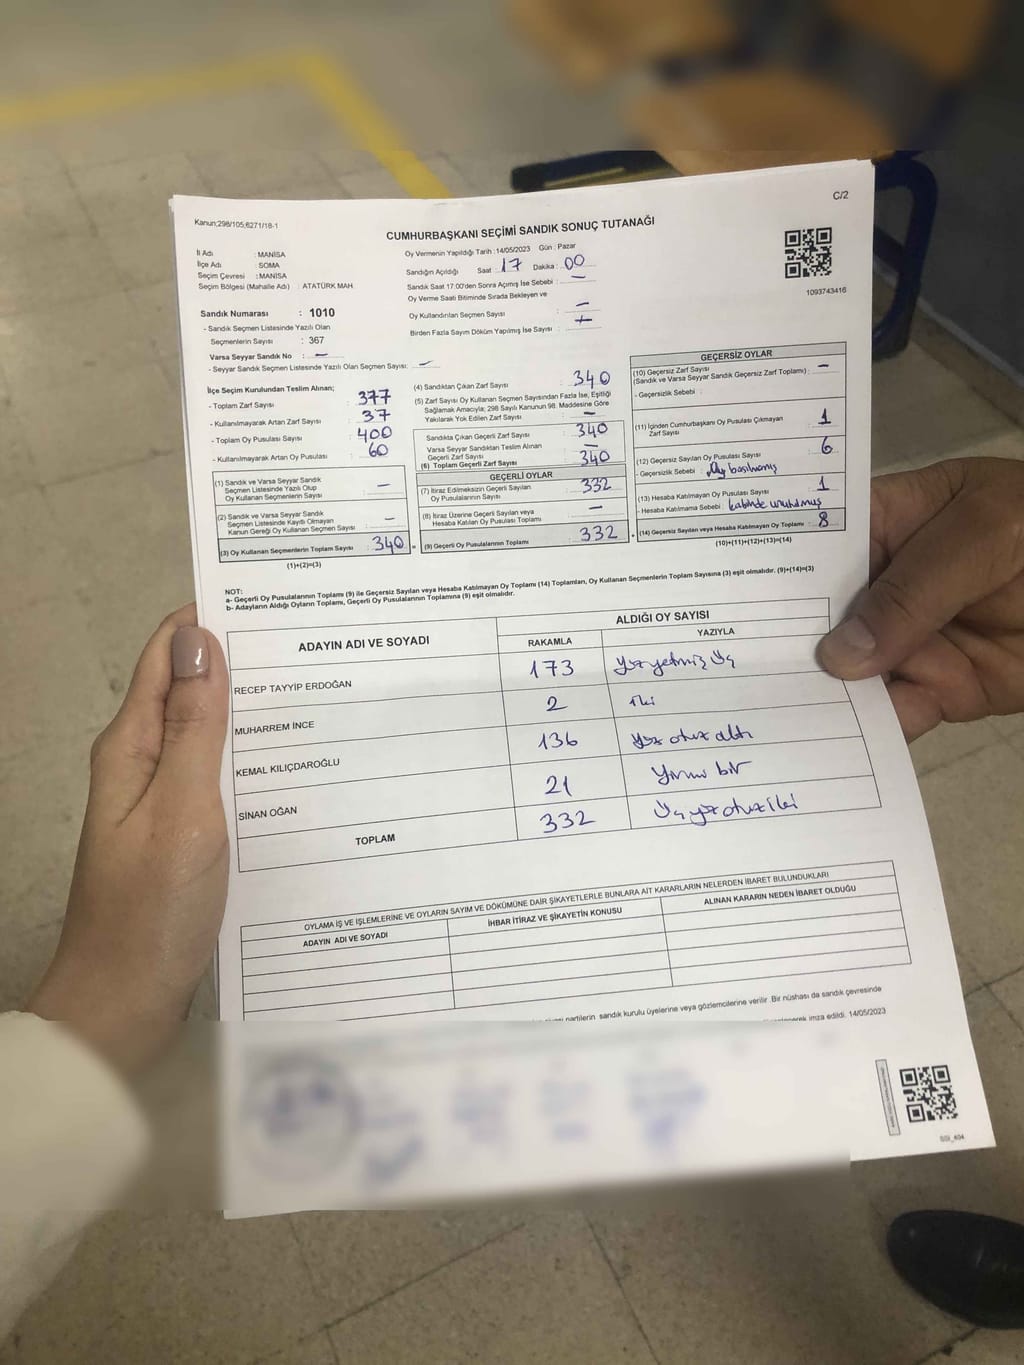 C/2
Kanun;298/105;6271/18-1
CUMHURBAŞKANI SEÇİMİ SANDIK SONUÇ TUTANAĞI
İl Adı : MANİSA
İlçe Adı : SOMA
Seçim Çevresi : MANİSA
Seçim Bölgesi (Mahalle Adı) : ATATÜRK MAH.
Sandık Numarası : 1010
- Sandık Seçmen Listesinde Yazılı Olan
Seçmenlerin Sayısı : 367
Varsa Seyyar Sandık No : —
- Seyyar Sandık Seçmen Listesinde Yazılı Olan Seçmen Sayısı: —
Oy Vermenin Yapıldığı Tarih : 14/05/2023 Gün : Pazar
Sandığın Açıldığı Saat : 17 Dakika : 00
Sandık Saat 17.00'den Sonra Açılmış İse Sebebi : —
Oy Verme Saati Bitiminde Sırada Bekleyen ve
Oy Kullandırılan Seçmen Sayısı : —
Birden Fazla Sayım Döküm Yapılmış İse Sayısı :
1093743416
İlçe Seçim Kurulundan Teslim Alınan;
- Toplam Zarf Sayısı : 377
- Kullanılmayarak Artan Zarf Sayısı : 37
- Toplam Oy Pusulası Sayısı : 400
- Kullanılmayarak Artan Oy Pusulası : 60
(1) Sandık ve Varsa Seyyar Sandık
Seçmen Listesinde Yazılı Olup
Oy Kullanan Seçmenlerin Sayısı : —
(2) Sandık ve Varsa Seyyar Sandık
Seçmen Listesinde Kayıtlı Olmayan
Kanun Gereği Oy Kullanan Seçmen Sayısı : —
(3) Oy Kullanan Seçmenlerin Toplam Sayısı : 340
(1)+(2)=(3)
(4) Sandıktan Çıkan Zarf Sayısı : 340
(5) Zarf Sayısı Oy Kullanan Seçmen Sayısından Fazla İse, Eşitliği
Sağlamak Amacıyla; 298 Sayılı Kanunun 98. Maddesine Göre
Yakılarak Yok Edilen Zarf Sayısı : —
Sandıkta Çıkan Geçerli Zarf Sayısı : 340
Varsa Seyyar Sandıktan Teslim Alınan
Geçerli Zarf Sayısı : —
(6) Toplam Geçerli Zarf Sayısı : 340
GEÇERLİ OYLAR
(7) İtiraz Edilmeksizin Geçerli Sayılan
Oy Pusulalarının Sayısı : 332
(8) İtiraz Üzerine Geçerli Sayılan veya
Hesaba Katılan Oy Pusulası Toplamı : —
(9) Geçerli Oy Pusulalarının Toplamı : 332
GEÇERSİZ OYLAR
(10) Geçersiz Zarf Sayısı
(Sandık ve Varsa Seyyar Sandık Geçersiz Zarf Toplamı) : —
- Geçersizlik Sebebi :
(11) İçinden Cumhurbaşkanı Oy Pusulası Çıkmayan
Zarf Sayısı : 1
(12) Geçersiz Sayılan Oy Pusulası Sayısı : 6
- Geçersizlik Sebebi : basılmamış
(13) Hesaba Katılmayan Oy Pusulası Sayısı : 1
- Hesaba Katılmama Sebebi : kabinde unutulmuş
(14) Geçersiz Sayılan veya Hesaba Katılmayan Oy Toplamı : 8
(10)+(11)+(12)+(13)=(14)
NOT:
a- Geçerli Oy Pusulalarının Toplamı (9) ile Geçersiz Sayılan veya Hesaba Katılmayan Oy Toplamı (14) Toplamları, Oy Kullanan Seçmenlerin Toplam Sayısına (3) eşit olmalıdır. (9)+(14)=(3)
b- Adayların Aldığı Oyların Toplamı, Geçerli Oy Pusulalarının Toplamına (9) eşit olmalıdır.
ADAYIN ADI VE SOYADI ALDIĞI OY SAYISI
RAKAMLA YAZIYLA
RECEP TAYYİP ERDOĞAN 173 Yüz yetmiş üç
MUHARREM İNCE 2 iki
KEMAL KILIÇDAROĞLU 136 yüz otuz altı
SİNAN OĞAN 21 Yirmi bir
TOPLAM 332 Üç yüz otuz iki
OYLAMA İŞ VE İŞLEMLERİNE VE OYLARIN SAYIM VE DÖKÜMÜNE DAİR ŞİKAYETLERLE BUNLARA AİT KARARLARIN NELERDEN İBARET BULUNDUKLARI
ADAYIN ADI VE SOYADI İHBAR İTİRAZ VE ŞİKAYETİN KONUSU ALINAN KARARIN NEDEN İBARET OLDUĞU
partilerin sandık kurulu üyelerine veya gözlemcilerine verilir. Bir nüshası da sandık çevresinde
imza edildi. 14/05/2023